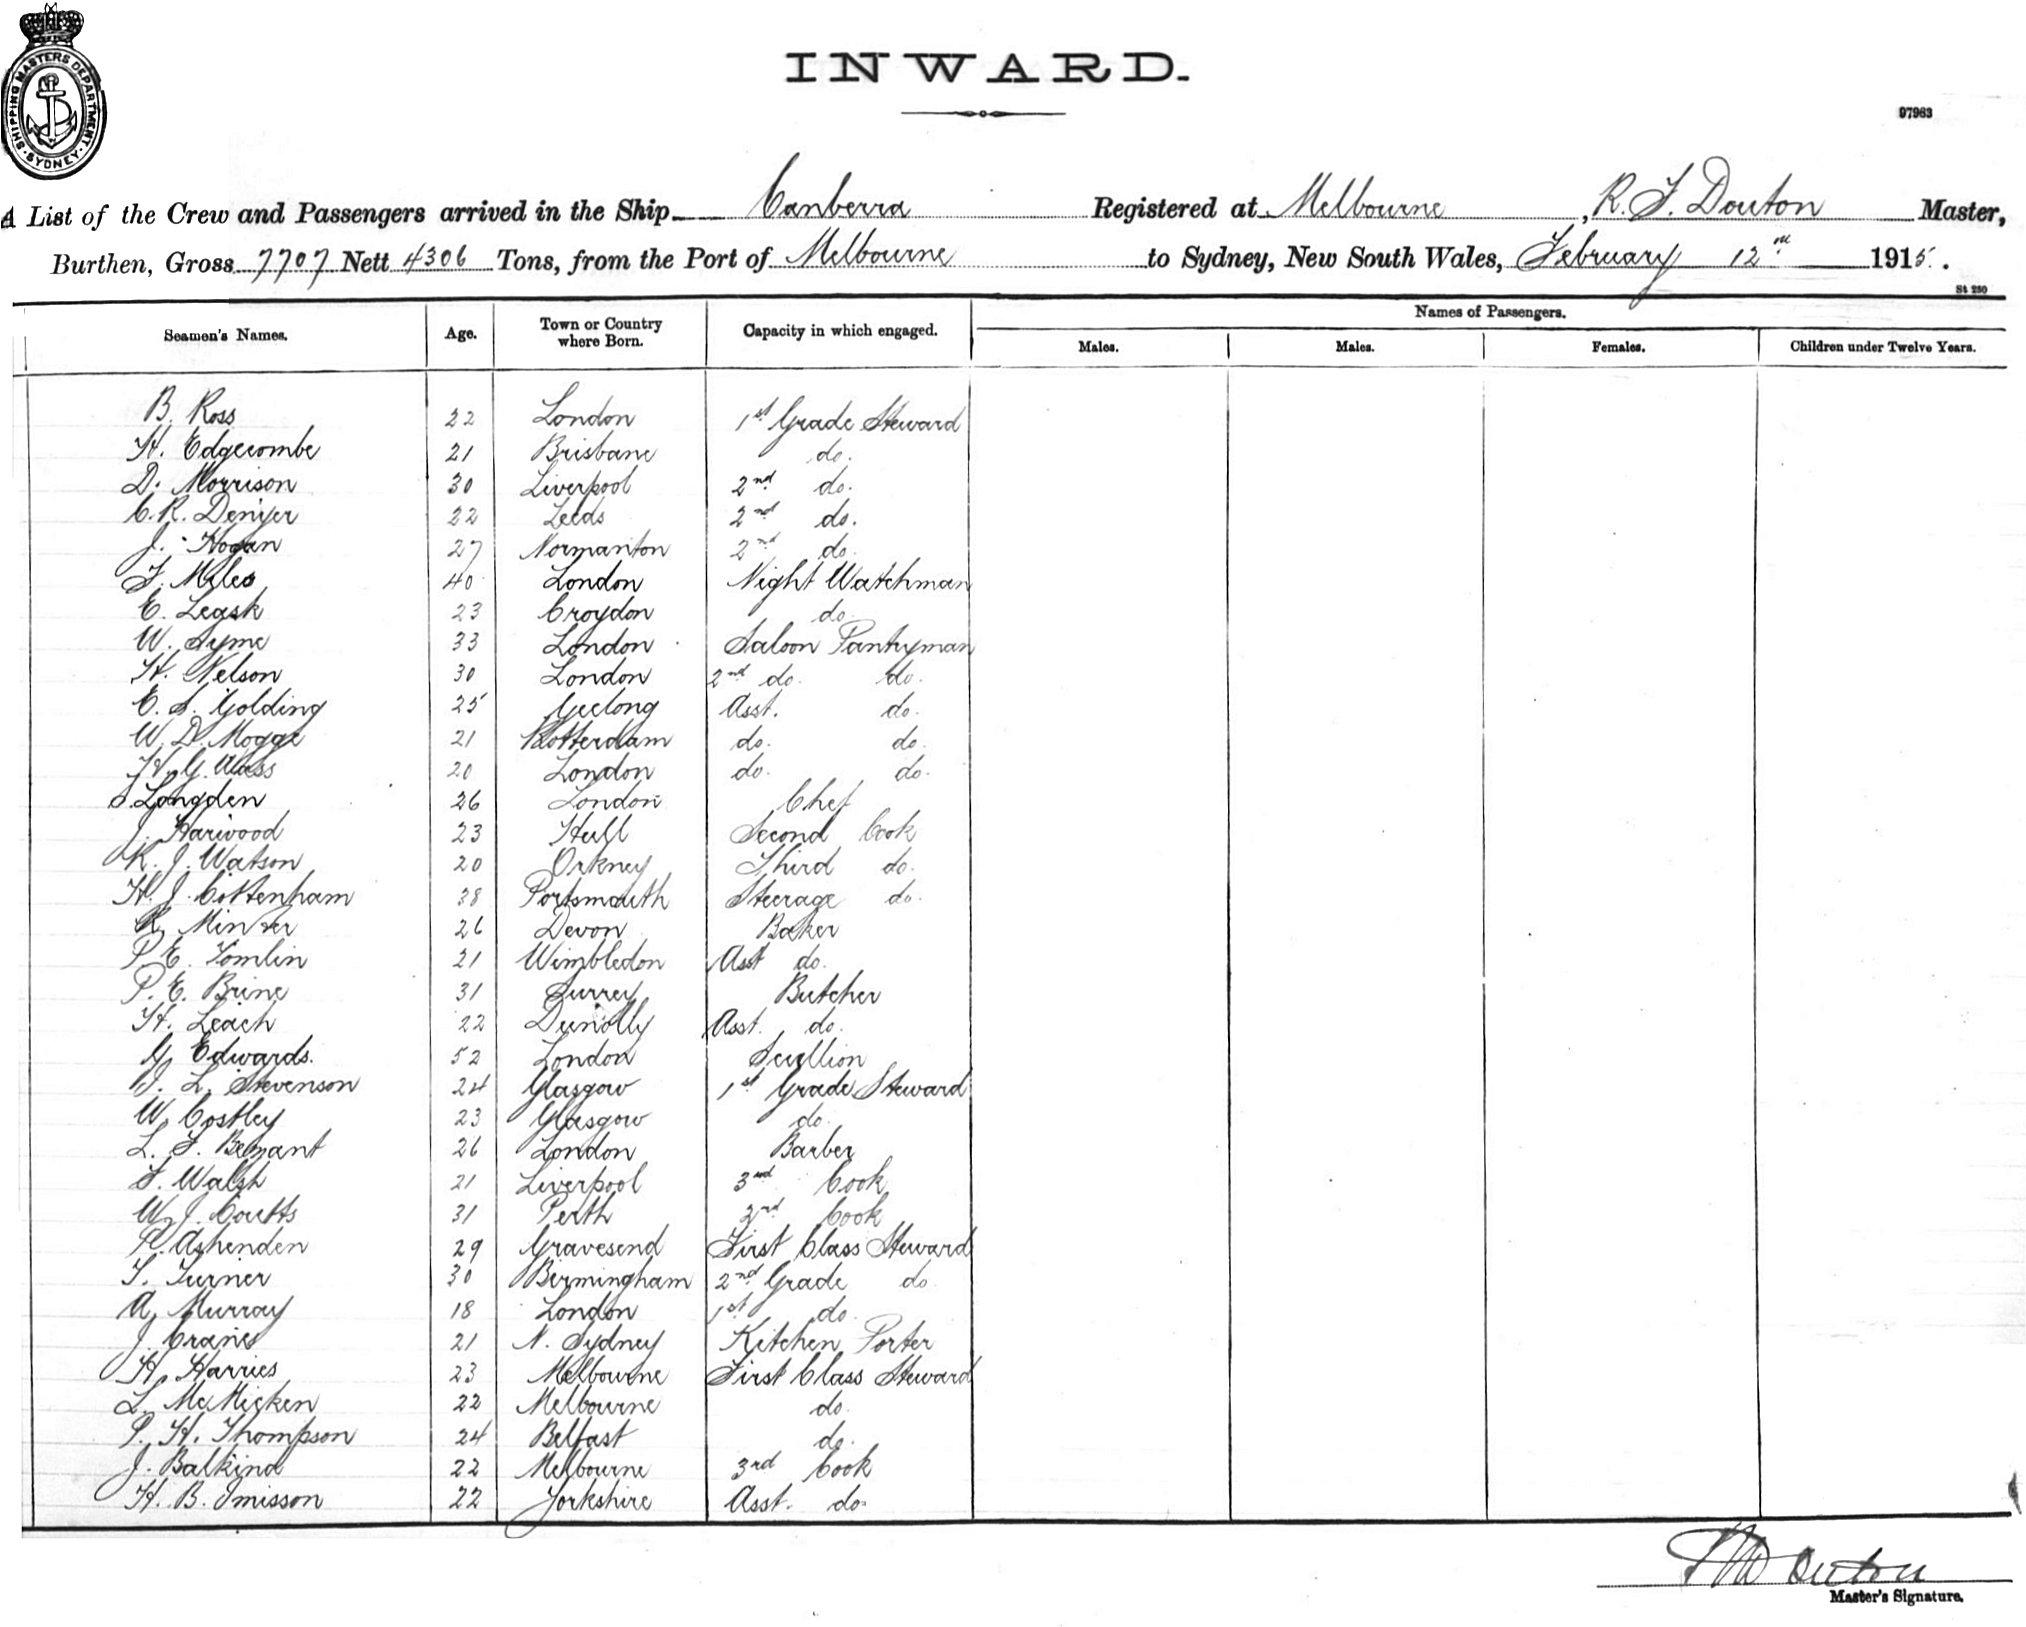 SHIPPING MASTERS DEPARTMENT. SYDNEY.
INWARD.
97963
A List of the Crew and Passengers arrived in the Ship Canberra Registered at Melbourne, R. F. Douton Master,
Burthen, Gross 7707 Nett 4306 Tons, from the Port of Melbourne to Sydney, New South Wales, February 12th 1915.
St 250
Seamen's Names. Age. Town or Country where Born. Capacity in which engaged. Names of Passengers.
Males. Males. Females. Children under Twelve Years.
B. Ross 22 London 1st Grade Steward
H. Edgecombe 21 Brisbane do.
D. Morrison 30 Liverpool 2nd do.
C. R. Denyer 22 Leeds 2nd do.
J. Hogan 27 Normanton 2nd do.
F. Miles 40 London Night Watchman
E. Leask 23 Croydon do.
W. Syme 33 London Saloon Pantryman
H. Nelson 30 London 2nd do. do.
E. S. Golding 25 Geelong Asst. do.
W. D. Mogge 21 Rotterdam do. do.
H. G. Wass 20 London do. do.
S. Longden 26 London Chef
J. Harwood 23 Hull Second Cook
R. J. Watson 20 Orkney Third do.
H. J. Cottenham 38 Portsmouth Steerage do.
R. Minter 26 Devon Baker
P. E. Tomlin 21 Wimbledon Asst do.
P. E. Brine 31 Surrey Butcher
H. Leach 22 Dunolly Asst. do.
G. Edwards. 52 London Scullion
J. L. Stevenson 24 Glasgow 1st Grade Steward
W. Costley 23 Glasgow do.
L. F. Bezant 26 London Barber
F. Walsh 21 Liverpool 3rd Cook
W. J. Coutts 31 Perth 2nd Cook
R. Ashenden 29 Gravesend First Class Steward
T. Turner 30 Birmingham 2nd Grade do.
A. Murray 18 London 1st do.
J. Cranes 21 N. Sydney Kitchen Porter
H. Harries 23 Melbourne First Class Steward
L. McMicken 22 Melbourne do.
P. H. Thompson 24 Belfast do.
J. Balkind 22 Melbourne 3rd Cook
H. B. Imisson 22 Yorkshire Asst. do.
Master's Signature.